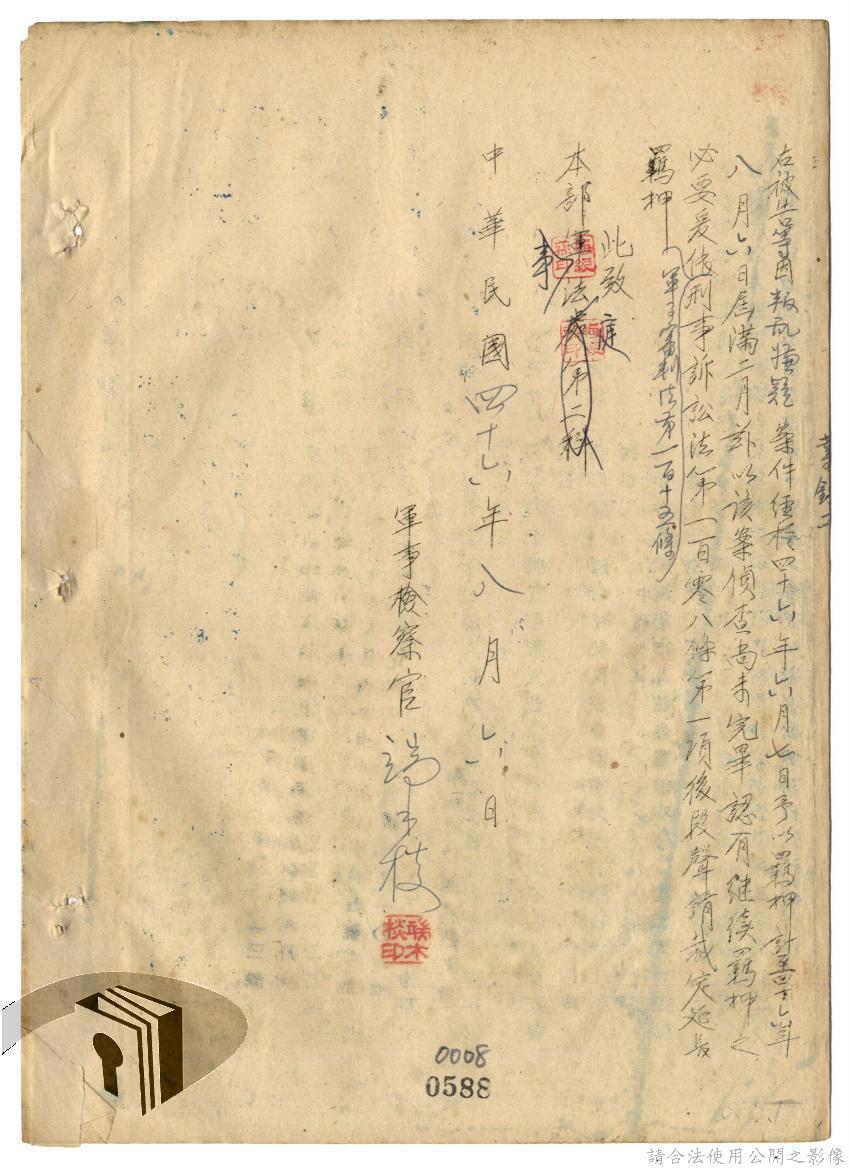 右被告等因叛亂嫌疑案件經於四十六年六月七日予以羈押計至四十六年
八月六日屆滿二月茲以該案偵查尚未完畢認有继续羈押之
必要爰依刑事訴訟法第一百零八條第一項後段聲請裁定延長
羈押
軍事審判法第一百十五條
此致
庭
本部軍法處第二科
事
中華民國四十六年八月六日
軍事檢察官
0008
0588
請合法使用公開之影像